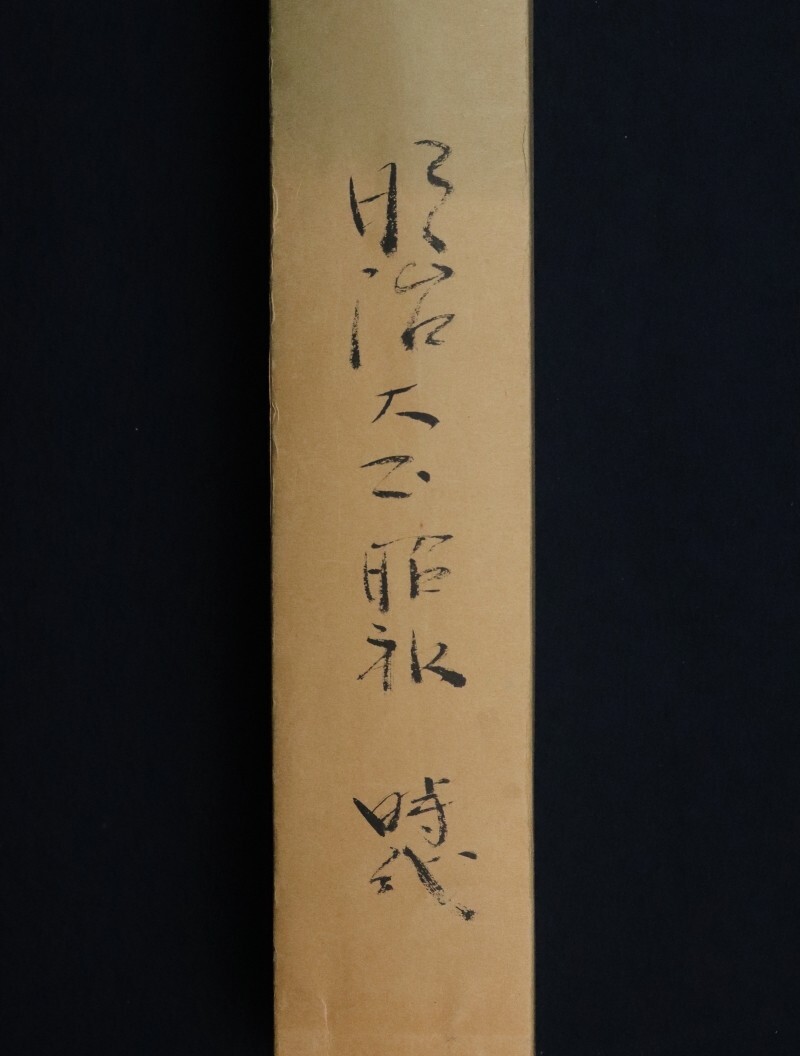 明治大正昭和 時代